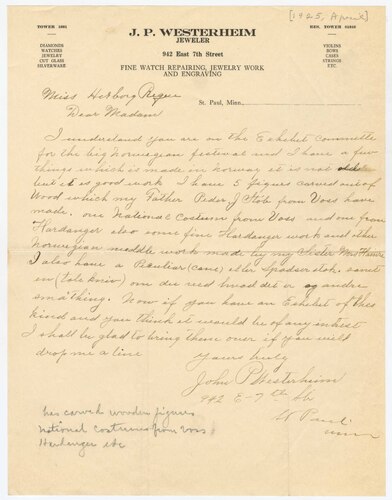 [1925, April]
TOWER 5901
J. P. WESTERHEIM
RES. TOWER
JEWELER
942 East 7th Street
DIAMONDS
WATCHES
JEWELRY
CUT GLASS
SILVERWARE
VIOLINS
BOWS
CASES
STRINGS
ETC.
FINE WATCH REPAIRING, JEWELRY WORK
AND ENGRAVING
St. Paul, Minn.
Miss Herborg Reque
Dear Madam
I understand you are on the Exhibit Committe
for the big Norwegian festival and I have a few
things which is made in Norway it is not old
but it is good work. I have 5 figures carved out of
Wood which my Father Peder J from Voss have
made. one National Costum from Voss and one from
Hardanger also some fine Hardanger work and other
Norwegian needle work made by my Sister Mrs
I also have a Peculiar (cane) eller Spadserstok. samt
en (tale kniv) om du ved hvad det er og andre
småthing. Now if you have an Exhibit of this
kind and you think it would be of any intrest
I shall be glad to bring them over if you will
drop me a line
Yours truly
John P Westerheim
942 E-7th St
St Paul
Minn
has carved wooden figures
national costumes from Voss
Hardanger etc